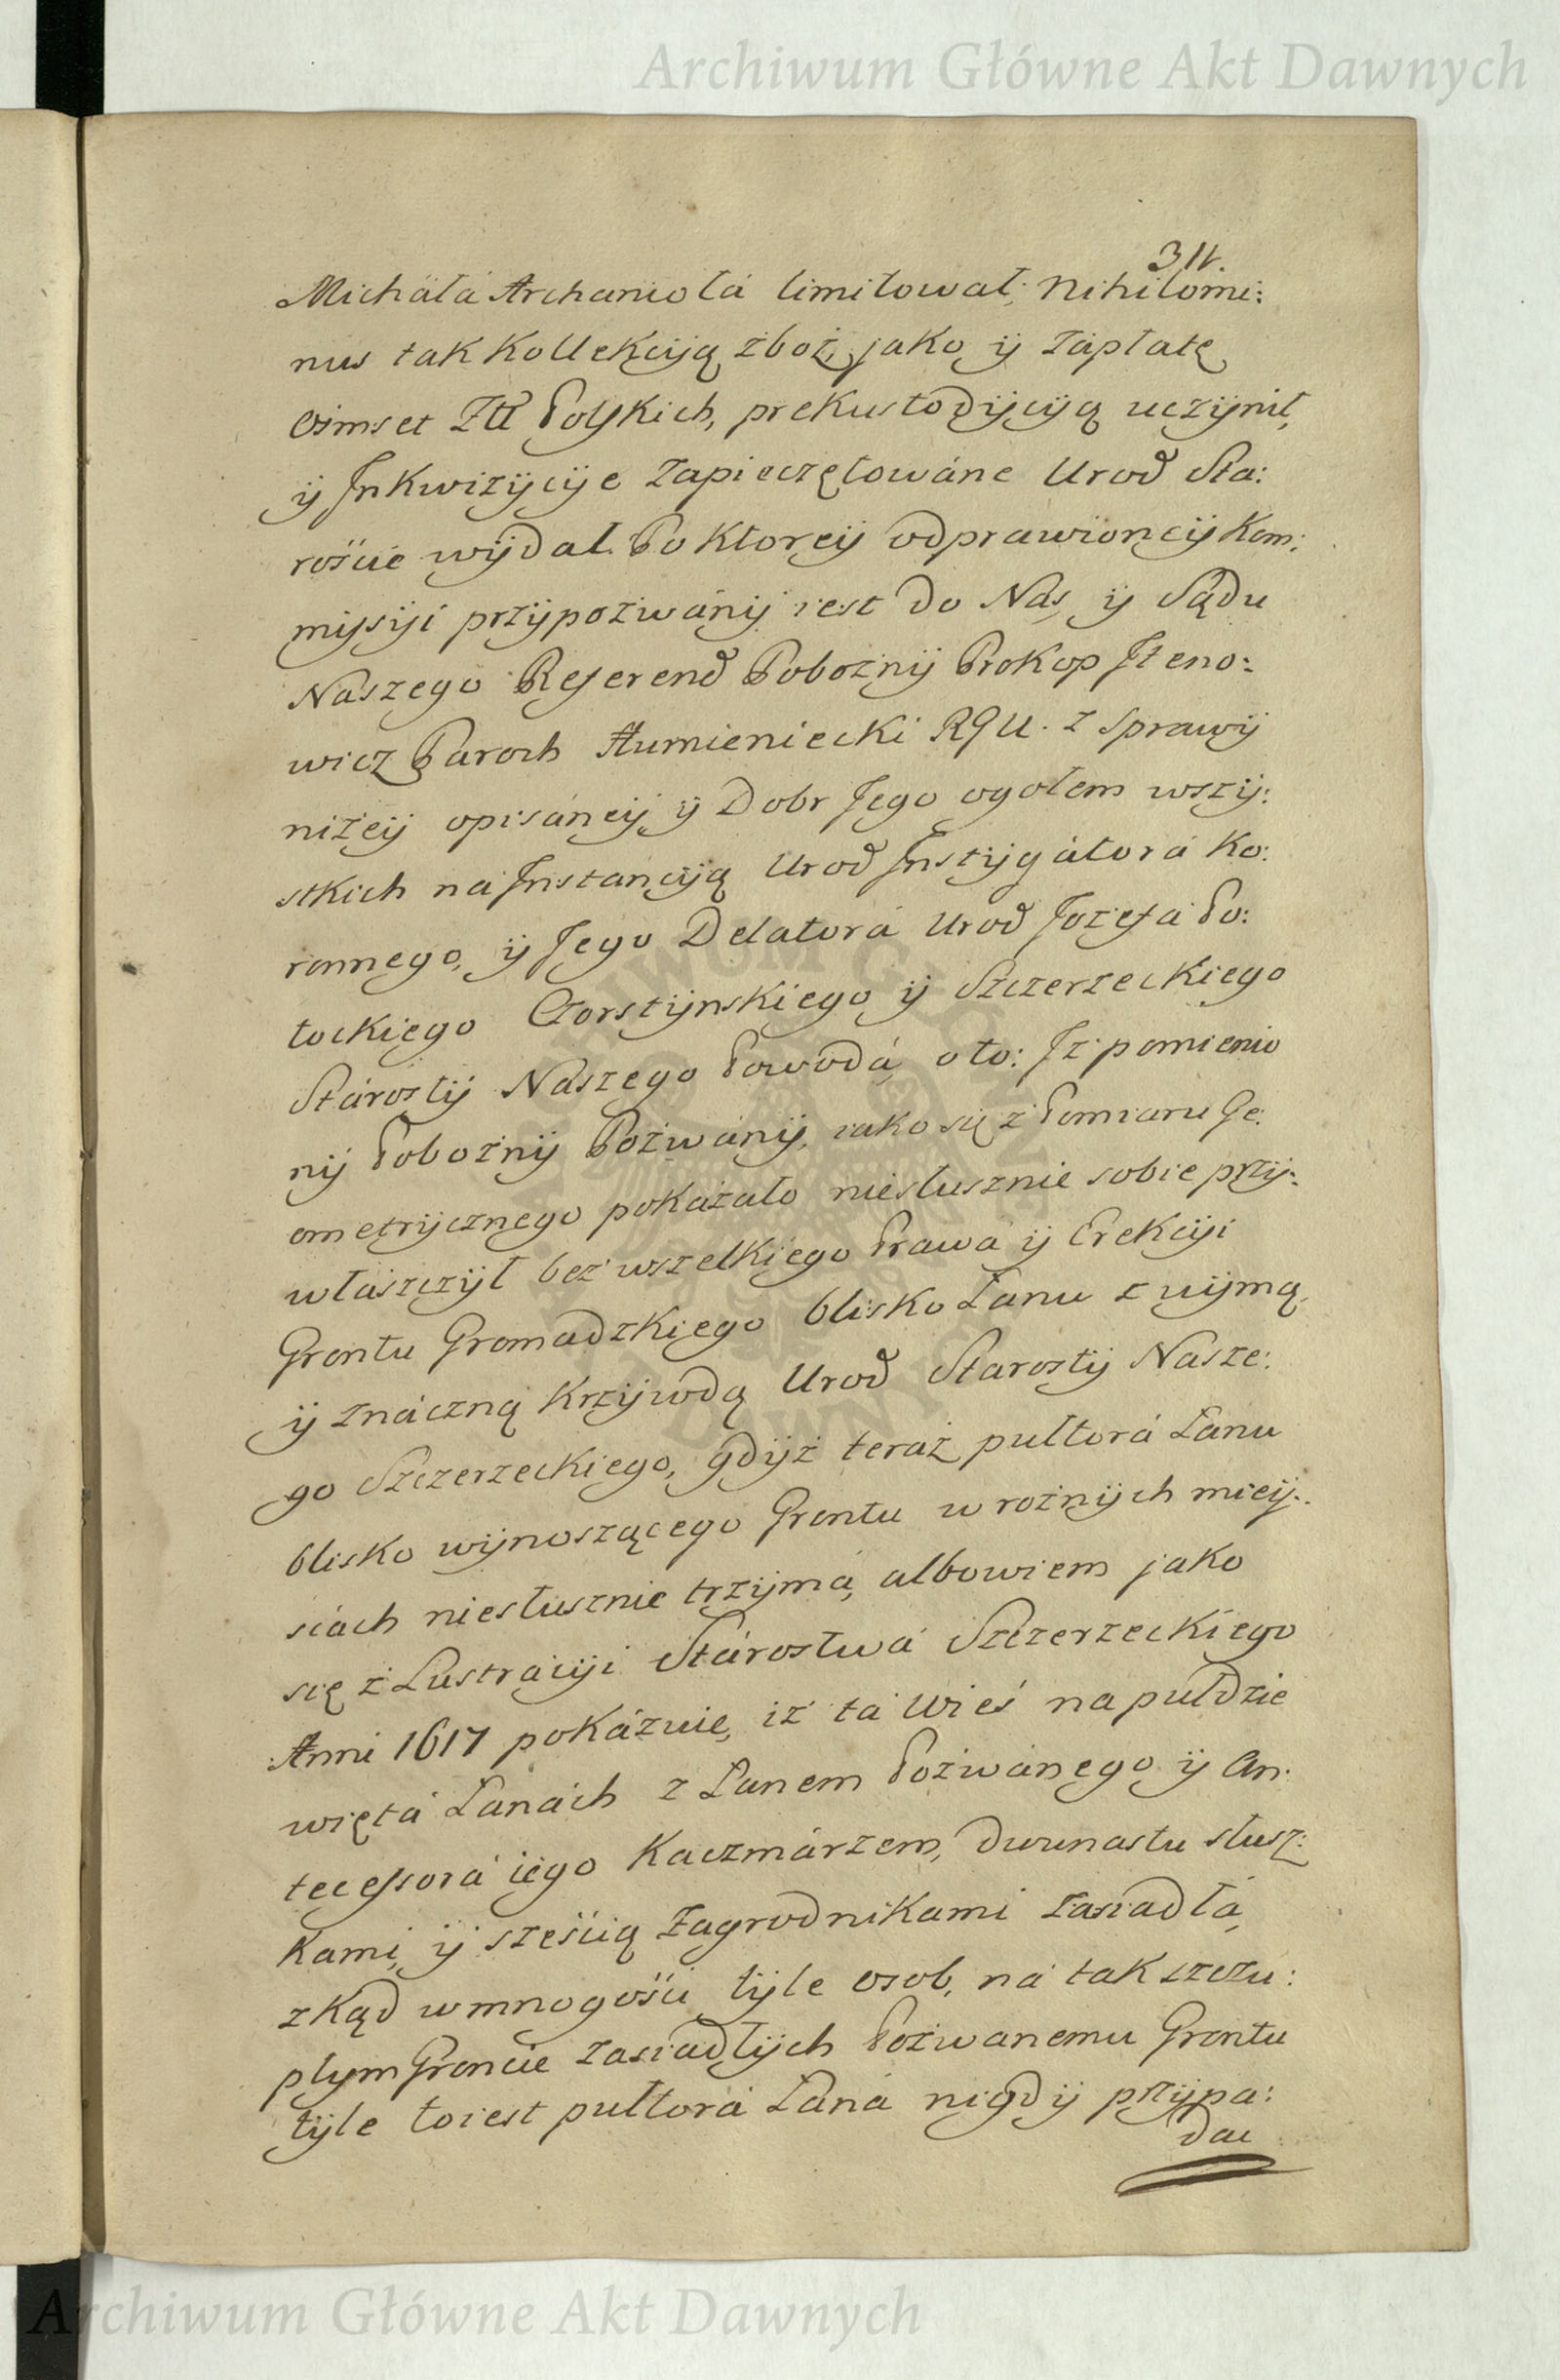 Archiwum Główne Akt Dawnych
311.
Micháłá Archanioła limitował, Nihilomi:
nus tak Kollekcyją zboż, jako ÿ zápłatę
ośmset Złł Polskich, prekustodÿcÿą uczÿnił,
ÿ Inkwizÿcÿe zapieczętowáne Urod Sta:
rościé wÿdał. Po Ktoreÿ odprawionéÿ Kom:
mißÿi przÿpozwánÿ iest do Nas, ÿ Sądu
Naszego Referend Pobożnÿ Prokop Ileno:
wicz Paroch Humieniecki RGU. z sprawÿ
niżeÿ opisáneÿ, ÿ Dobr Jego ogołem wszÿ:
stkich na Instáncÿą Urod Instÿgátorá Ko:
ronnego, ÿ Jego Delatorá Urod Jozefá Po:
tockiego Czorstÿnskiego ÿ Szczerzeckiego
Stárostÿ Naszego Powodá, oto: Iż pomienio
nÿ Pobożnÿ Pozwánÿ, iako się z Pomiaru Ge:
ometrÿcznego pokázało niesłusznie sobie przÿ:
właszczÿł bez wszelkiego Prawá ÿ Erekcÿi
Grontu Gromadzkiego blisko Łanu z uÿmą,
ÿ znáczną Krzÿwdą Urod Starostÿ Nasze:
go Szczerzeckiego, gdÿż teraz pułtorá Łanu
blisko wÿnoszącego Grontu w rożnÿch mieÿ:
scách niesłusznie trzÿmá, albowiem jako
się z Lustrácÿi Stárostwá Szczerzeckiego
Anni 1617 pokázuie, iż tá Wieś na pułdzie
więtá Łanách z Łanem Pozwánego ÿ An:
tecessorá iego Kaczmárzem, dwunastu słusz:
kami, ÿ sześcią Zagrodnikami zasiadłá,
zkąd w mnogości tÿle osob, ná tak szczu:
płym Groncie zasiadłÿch Pozwanemu Grontu
tÿle to iest pułtorá Łaná nigdÿ przÿpa:
dac
Archiwum Główne Akt Dawnych